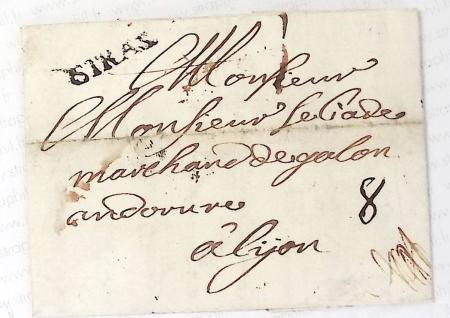 STRAS
Monsieur
Monsieur
marchand de galon
andorure
à lyon
8